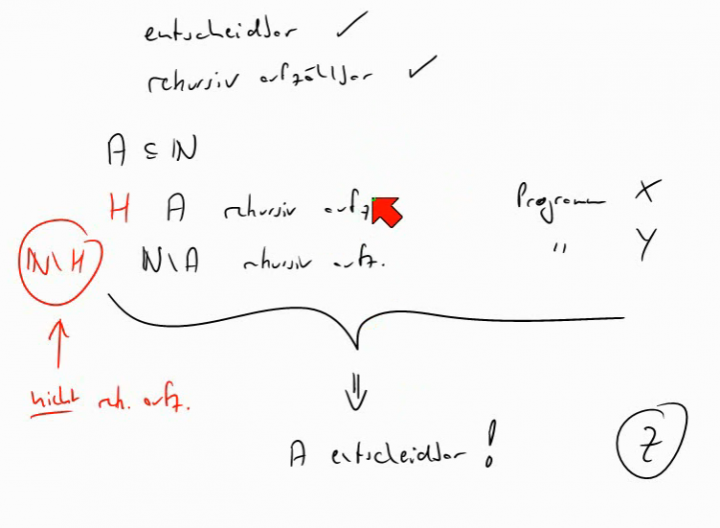 entscheidbar ✓
rekursiv aufzählbar ✓
A ⊆ ℕ
H A rekursiv aufz. Programm X
ℕ\H ℕ\A rekursiv aufz. " Y
nicht rek. aufz.
⇓
A entscheidbar! Z